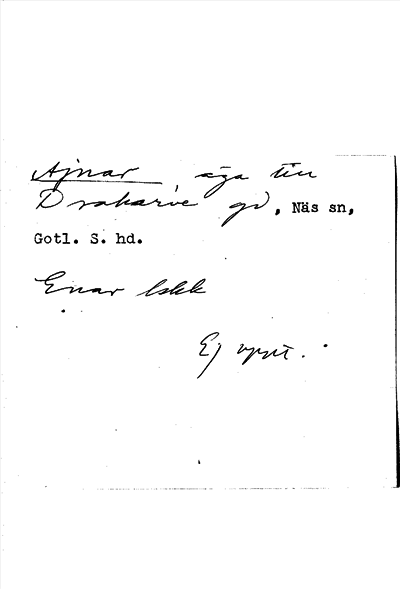 Ajnar äga till
Drakarve gd, Näs sn,
Gotl. S. hd.
Enar
Ej uppt.